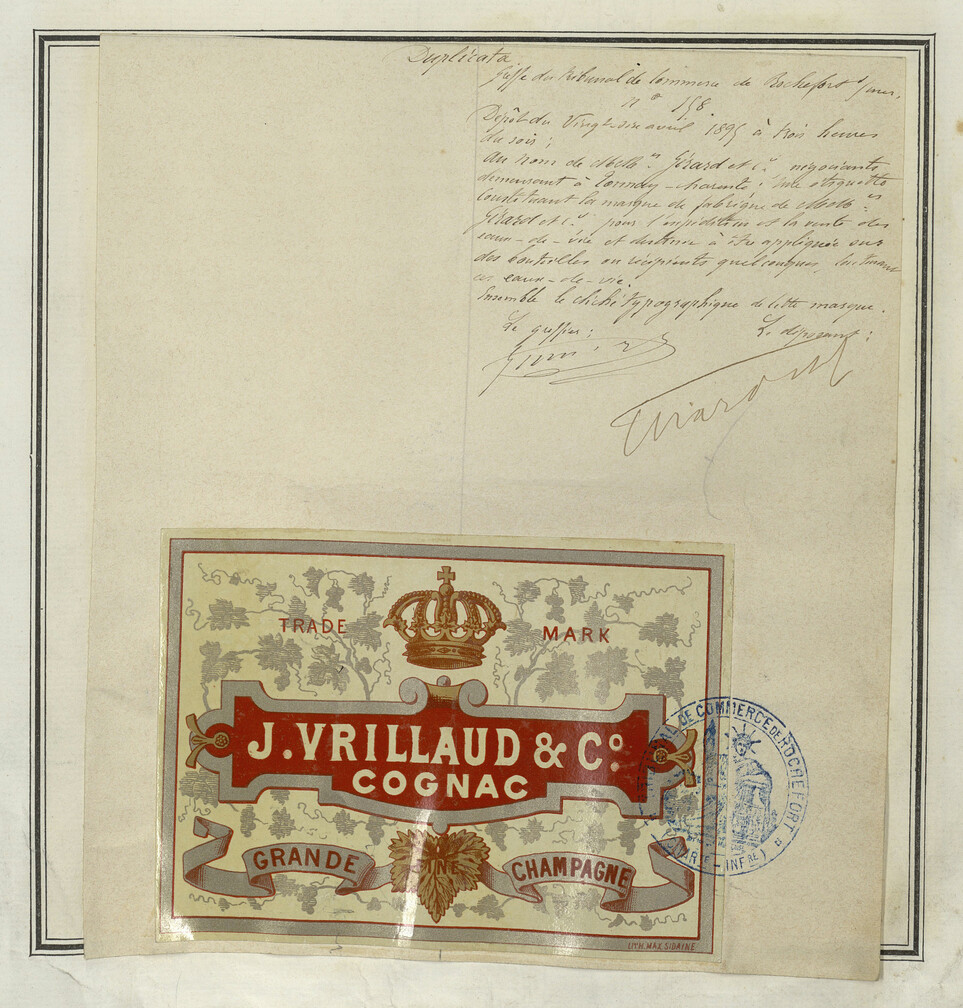 Duplicata
Greffe du tribunal de Commerce de Rochefort s/ mer.
n° 158.
Dépôt du Vingt-six avril 1895 à trois heures
du soir ;
Au nom de MM.rs Girard et C.ie négociants
demeurant à Tonnay-Charente ; Une étiquette
constituant la marque de fabrique de MM.rs
Girard et C.ie pour l'expédition et la vente des
eaux-de-vie et destinée à être appliquée sur
des bouteilles ou récipients quelconques, contenant
ces eaux-de-vie.
Ensemble le cliché typographique de cette marque.
Le greffier : Le déposant :
Girard
TRADE MARK
J. VRILLAUD & Co.
COGNAC
GRANDE FINE CHAMPAGNE
LITH. MAX SIDAINE
DE COMMERCE DE ROCHEFORT
INFRE)